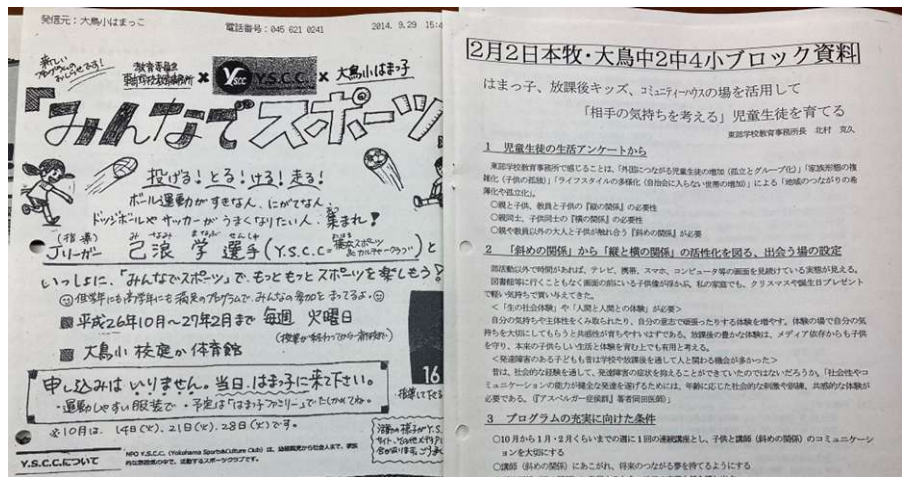 発信元：大鳥小はまっこ
電話番号：045 621 0241
2014. 9.29 15:4
新しい
プログラムの
おしらせです!
教育委員会
東部学校教育事務所
×
Y.S.C.C.
×
大鳥小はまっ子
『みんなでスポーツ
投げる!とる!ける!走る!
ボール運動がすきな人、にがてな人、
ドッジボールやサッカーがうまくなりたい人、集まれ!
(指導)
Jリーガー 己浪 学 選手(Y.S.C.C=横浜スポーツ&カルチャークラブ)と
いっしょに、「みんなでスポーツ」で、もっともっとスポーツを楽しもう
低学年にも高学年にも満足のプログラムで、みんなの参加をまってるよ。
平成26年10月〜27年2月まで 毎週 火曜日
大鳥小 校庭か体育館
申し込みは いりません。当日、はまっ子に来て下さい。
・運動しやすい服装で ・予定は「はまっ子ファミリー」でたしかめてね。
※10月は、14日(火)、21日(火)、28日(火)です。
16
Y.S.C.C.について
NPO Y.S.C.C.（Yokohama Sports&Culture Club）は、幼稚園児から社会人まで、家族
的な雰囲気の中で、活動するスポーツクラブです。
2月2日本牧・大鳥中2中4小ブロック資料
はまっ子、放課後キッズ、コミュニティーハウスの場を活用して
「相手の気持ちを考える」児童生徒を育てる
東部学校教育事務所長　北村　克久
1　児童生徒の生活アンケートから
東部学校教育事務所で感じることは、「外国につながる児童生徒の増加（孤立とグループ化）」「家族形態の複
雑化（子供の孤独）」「ライフスタイルの多様化（自治会に入らない世帯の増加）」による「地域のつながりの希
薄化や孤立化」。
○親と子供、教員と子供の『縦の関係』の必要性
○親同士、子供同士の『横の関係』の必要性
○親や教員以外の大人と子供が触れ合う『斜めの関係』が必要
2　「斜めの関係」から「縦と横の関係」の活性化を図る、出会う場の設定
部活動以外で時間があれば、テレビ、携帯、スマホ、コンピュータ等の画面を見続けている実態が見える。
図書館等に行くこともなく画面の前にいる子供像が浮かぶ。私の家庭でも、クリスマスや誕生日プレゼント
で軽い気持ちで買い与えてきた。
＜「生の社会体験」や「人間と人間との体験」が必要＞
自分の気持ちや主体性をくみ取られたり、自分の意志で頑張ったりする体験を増やす。体験の場で自分の気
持ちを大切にしてもらうと共感性が育ちやすいはずである。放課後の豊かな体験は、メディア依存からも子供
を守り、本来の子供らしい生活と体験を育む上でも有用と考える。
＜発達障害のある子どもも昔は学校や放課後を通して人と関わる機会が多かった＞
昔は、社会的な経験を通して、発達障害の症状を抑えることができていたのではないだろうか。「社会性やコ
ミュニケーションの能力が健全な発達を遂げるためには、年齢に応じた社会的な刺激や訓練、共感的な体験が
必要である。（『アスペルガー症候群』著者岡田医師）」
3　プログラムの充実に向けた条件
○10月から1月・2月くらいまでの週に1回の連続講座とし、子供と講師（斜めの関係）のコミュニケーシ
ョンを大切にする
○講師（斜めの関係）にあこがれ、将来のつながる夢を持てるようにする